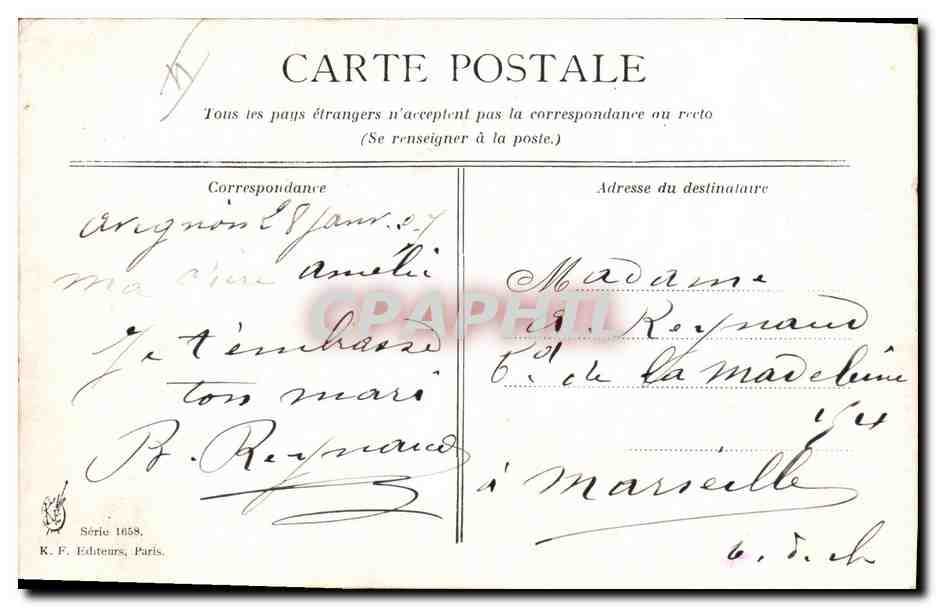 CARTE POSTALE
Tous les pays étrangers n'acceptent pas la correspondance au recto
(Se renseigner à la poste.)
Correspondance
Avignon 28 Janv. 07
ma chère Amélie
Je t'embrasse
ton mari
B. Reynaud
Série 1658.
K. F. Editeurs, Paris.
Adresse du destinataire
Madame
Reynaud
Bd. de la Madeleine
à Marseille
CPAPHIL